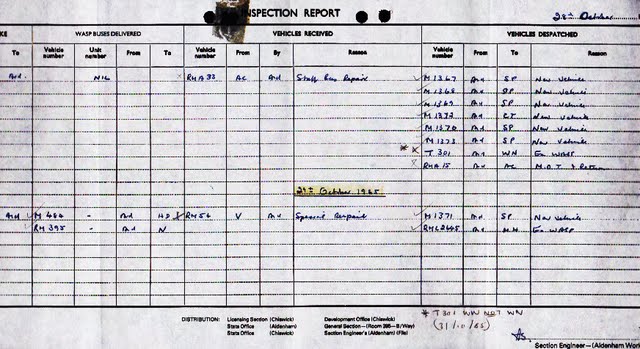 INSPECTION REPORT
28th October
KE WASP BUSES DELIVERED VEHICLES RECEIVED VEHICLES DISPATCHED
To Vehicle number Unit number From To Vehicle number From By Reason Vehicle number From To Reason
Ad. NIL RMA 33 AC Ad Staff Bus Repair M 1367 Ad SP New Vehicle
M 1368 Ad SP New Vehicle
M 1369 Ad SP New Vehicle
M 1372 Ad CT New Vehicle
M 1370 Ad SP New Vehicle
M 1373 Ad SP New Vehicle
* T 301 Ad WN Ex WASP
RMA 15 Ad AC M.O.T & Return
29th October 1965
Ad M 484 - Ad HD RM 54 V Ad Special Repair M 1371 Ad SP New Vehicle
RM 395 - Ad N RML 2445 Ad Ex WASP
DISTRIBUTION: Licensing Section (Chiswick) Development Office (Chiswick)
State Office (Aldenham) General Section—(Room 395—B/Way)
State Office (Chiswick) Section Engineer's (Aldenham) (File)
* T 301 WW NOT WN
(31/10/65)
Section Engineer—(Aldenham Wor